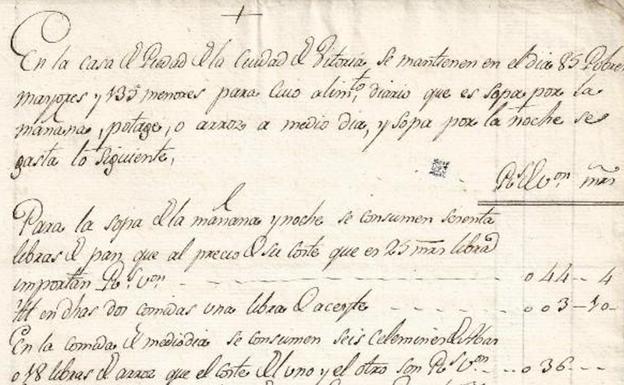 En la casa de Piedad de la Ciudad de Vitoria, se mantienen en el dia 85 Pobres
mayores y 135 menores para cuio alimto, diario que es sopa por la
mañana, potage, o arroz a medio dia, y sopa por la noche se
gasta lo siguiente,
Rs. Von mrs
Para la sopa de la mañana y noche se consumen sesenta
libras de pan, que al precio de su coste que es 25 mrs libra
importan Rs. Von - - - 0 44 - - 4
Yt en dhas dos comidas una libra de aceyte - - - 0 0 3 - 10 -
En la comida de mediodia se consumen seis celemines de
o 18 libras de arroz que el coste del uno y el otro son Rs. Von - - 0 36 - -